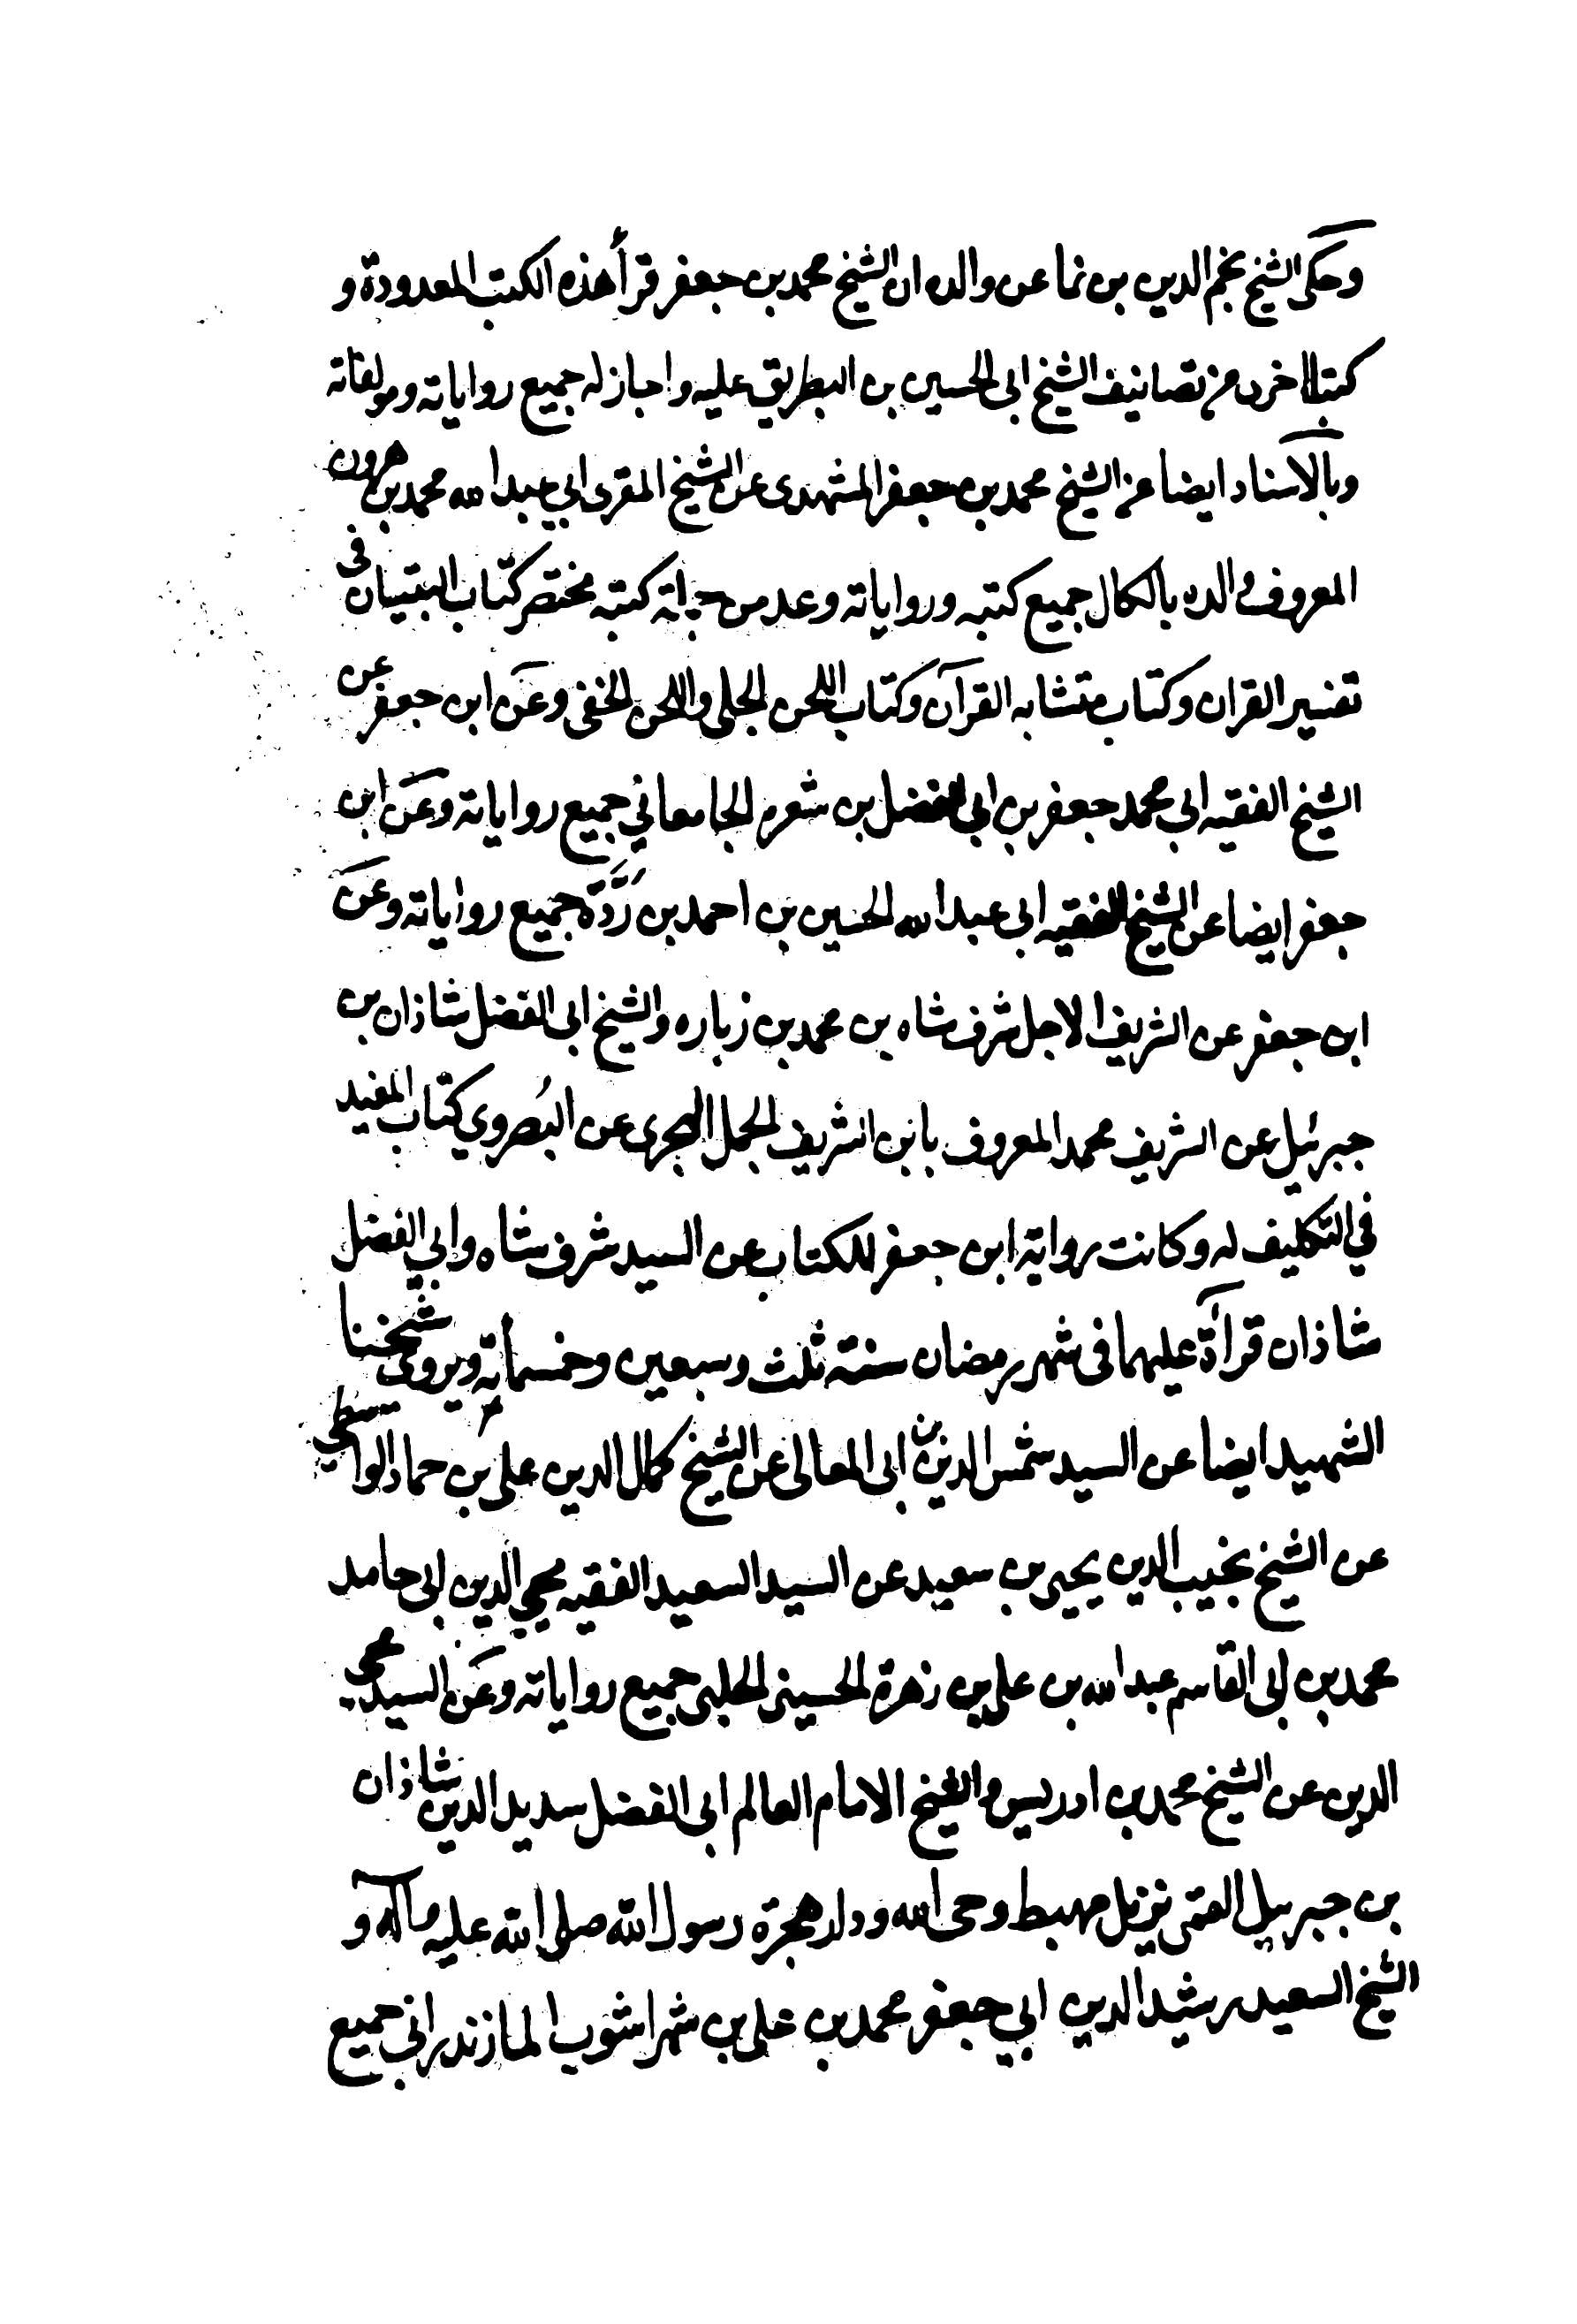 وحكى الشيخ نجم الدين بن نما عن والده ان الشيخ محمد بن جعفر قرأ هذه الكتب المعدودة و
كتبا اخرى من تصانيف الشيخ ابى الحسين بن البطريق عليه واجاز له جميع رواياته ومولفاته
وبالاسناد ايضا عن الشيخ محمد بن جعفر المشهدى عن الشيخ المقرى ابي عبد الله محمد بن هرون
المعروف والده بالكال جميع كتبه ورواياته وعد من جملة كتبه مختصر كتاب التبيان في
تفسير القران وكتاب متشابه القرآن وكتاب اللحن الجلى واللحن الخفى وعن ابن جعفر عن
الشيخ الفقيه ابي محمد جعفر بن ابى الفضل بن شعره الجامعاني جميع رواياته وعن ابن
جعفر ايضا عن الشيخ الفقيه ابى عبد الله الحسين بن احمد بن رَدَّة جميع رواياته وعن
ابن جعفر عن الشريف الاجل شرفشاه بن محمد بن زباره والشيخ ابى الفضل شاذان بن
جبرئيل عن الشريف محمد المعروف بابن الشريف الجمل البحرى عن البُصروي كتاب المفيد
في التكليف له وكانت رواية ابن جعفر للكتاب عن السيد شرف شاه وابي الفضل
شاذان قرآءة عليهما فى شهر رمضان سنة ثلث وسبعين وخمسمأية ويروى شيخنا
الشهيد ايضا عن السيد شمس الدين بن ابى المعالى عن الشيخ كمال الدين على بن حماد الواسطي
عن الشيخ نجيب الدين يحيى بن سعيد عن السيد السعيد الفقيه محيي الدين ابى حامد
محمد بن ابى القاسم عبد الله بن على بن زهرة الحسينى الحلبى جميع رواياته وعن السيد محيى
الدين عن الشيخ محمد بن ادريس والشيخ الامام العالم ابى الفضل سديد الدين شاذان
بن جبريل القمى نزيل مهبط وحى الله ودار هجرة رسول الله صلى الله عليه وآله و
الشيخ السعيد رشيد الدين ابي جعفر محمد بن على بن شهراشوب المازندرانى جميع